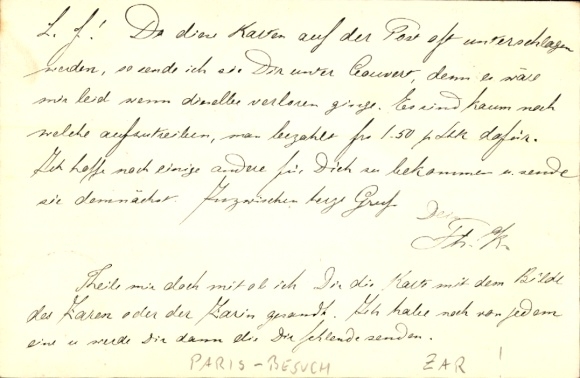 L. J.! Da diese Karten auf der Post oft unterschlagen
werden, so sende ich sie Dir unter Couvert, denn es wäre
mir leid wenn dieselbe verloren ginge. Es sind kaum noch
welche aufzutreiben, man bezahlt frs 1.50 p. Stk dafür.
Ich hoffe noch einige andere für Dich zu bekommen u. sende
sie demnächst. Inzwischen herzl Gruß
Dein
Th. K.
Theile mir doch mit ob ich Dir die Karte mit dem Bilde
des Zaren oder der Zarin gesandt. Ich habe noch von jedem
eine u werde Dir dann die Dir fehlende senden.
PARIS-BESUCH ZAR !